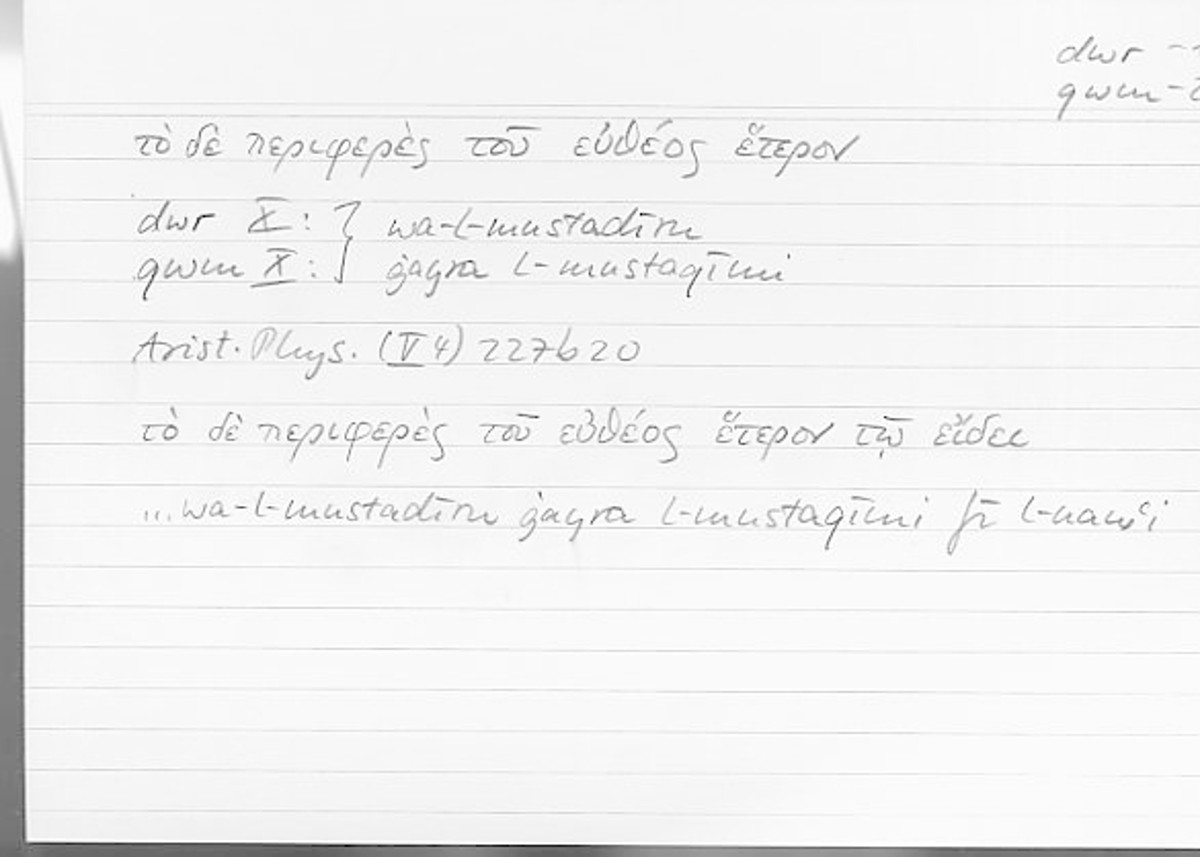 dwr
qwm
τὸ δὲ περιφερὲς τοῦ εὐθέος ἕτερον
dwr X : } wa-l-mustadīru
qwm X : } ġayra l-mustaqīmi
Arist. Phys. (V 4) 227b20
τὸ δὲ περιφερὲς τοῦ εὐθέος ἕτερον τῷ εἴδει
...wa-l-mustadīru ġayra l-mustaqīmi fī l-nawʿi